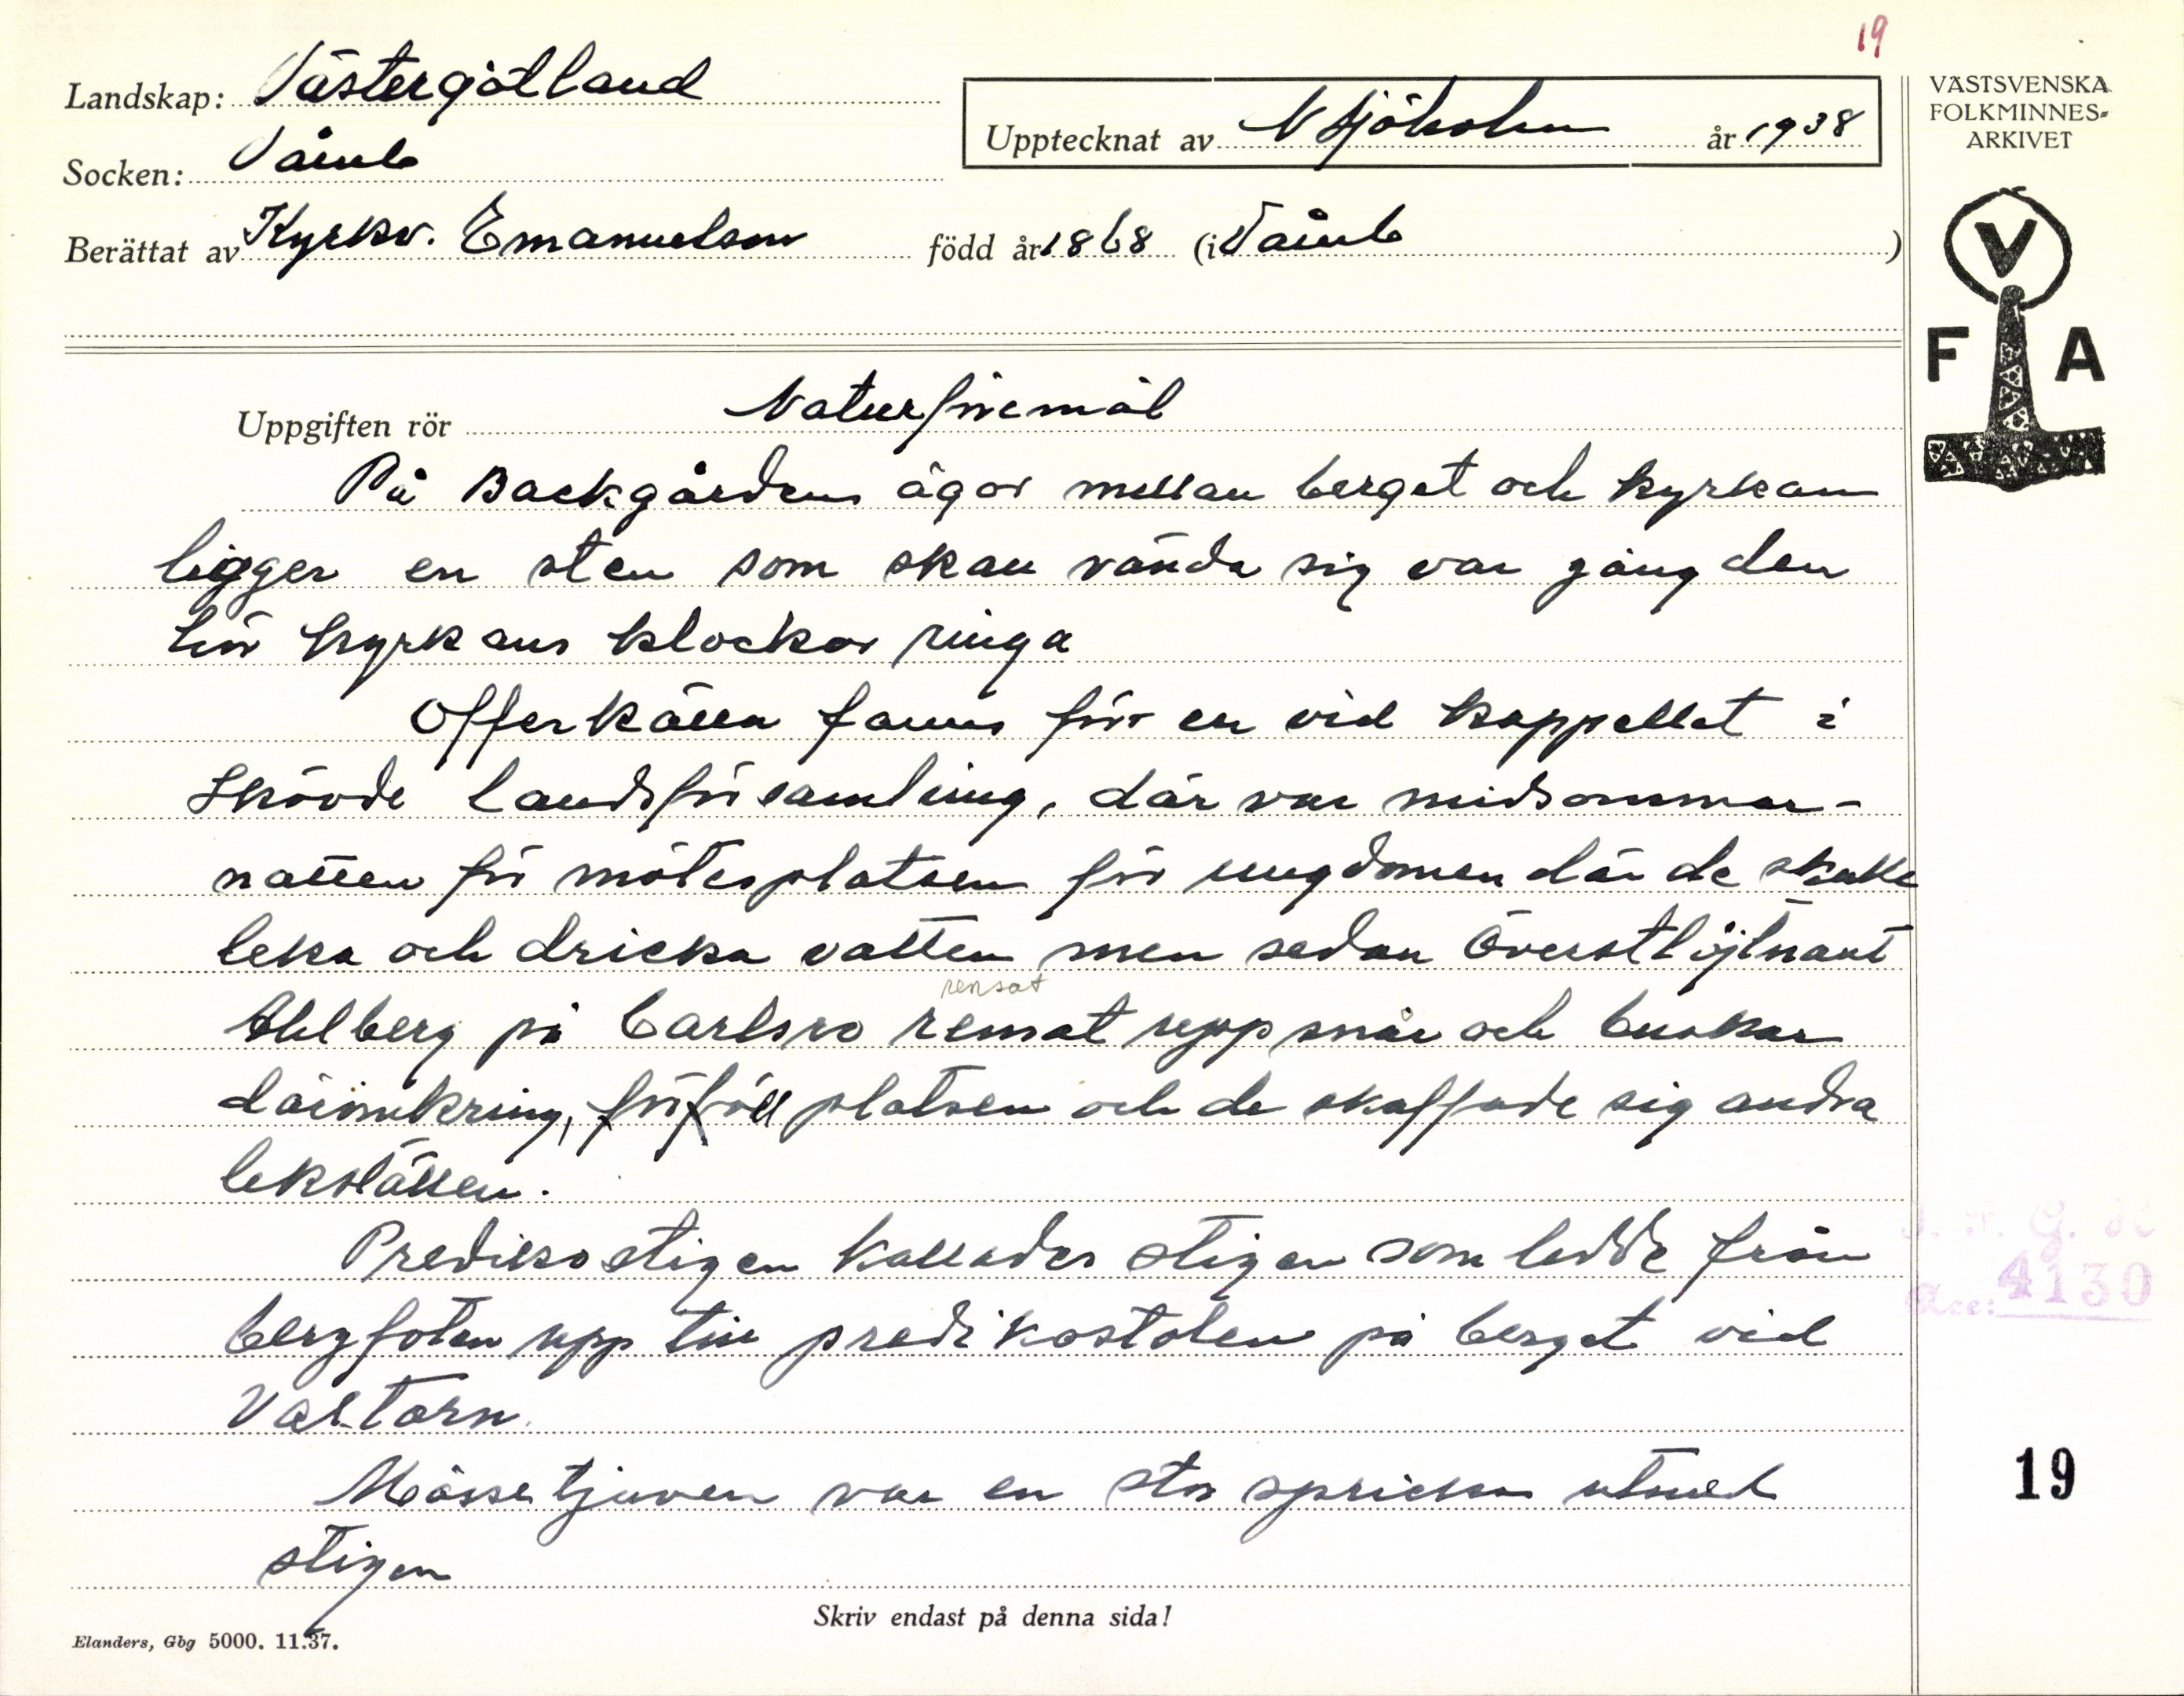 19
Landskap: Västergötland
Upptecknat av N Sjöholm år 1938
Socken: Våmb
Berättat av Kyrkv. Emanuelson född år 1868 (i Våmb )
VÄSTSVENSKA
FOLKMINNES-
ARKIVET
V
F A
Uppgiften rör Naturföremål
På Backgårdens ägor mellan berget och kyrkan
ligger en sten som skall vända sig var gång den
hör kyrkans klockor ringa
Offerkälla fanns förr en vid kappellet i
Skövde landsförsamling, där var midsommar-
natten för mötesplatsen för ungdomen där de skulle
leka och dricka vatten men sedan Överstlöjtnant
rensat
Ahlberg på Carlsro rensat upp snår och buskar
däromkring, förföll platsen och de skaffade sig andra
lekställen.
Predikostigen kallades stigen som ledde från
bergfoten upp till predikostolen på berget vid
Valtorn.
Mössetjuven var en stor spricka utmed
stigen
Acc: 4130
19
Skriv endast på denna sida!
Elanders, Gbg 5000. 11.37.